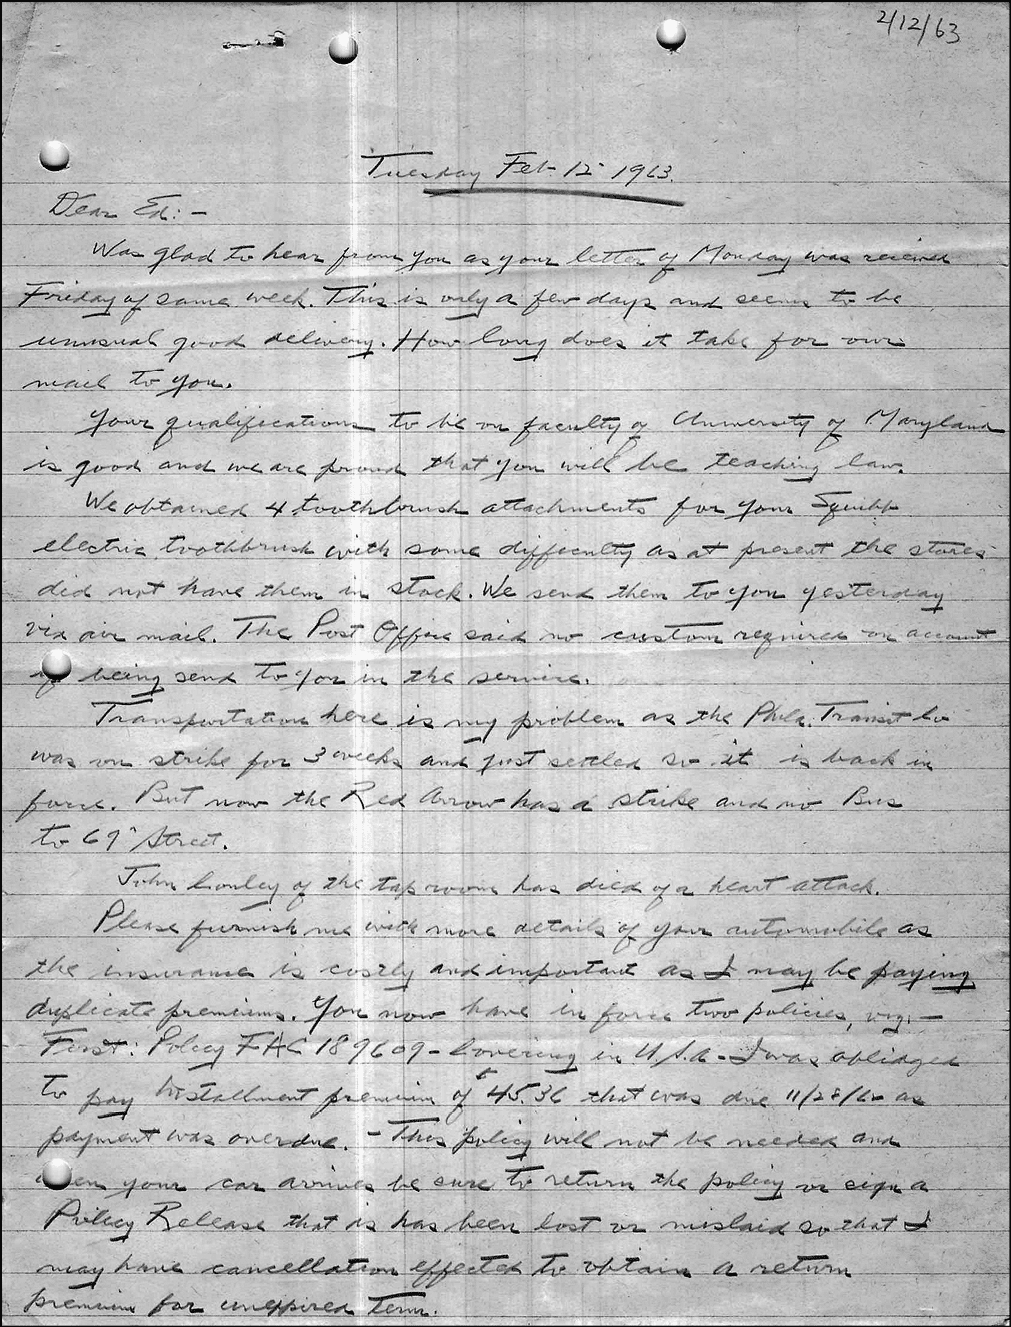 2/12/63
Tuesday Feb 12 1963.
Dear Ed:-
Was glad to hear from you as your letter of Monday was recieved
Friday of same week. This is only a few days and seems to be
unusual good delivery. How long does it take for our
mail to you.
Your qualifications to be on faculty of University of Maryland
is good and we are proud that you will be teaching law.
We obtained 4 toothbrush attachments for your Squibb
electric toothbrush with some difficulty as at present the stores
did not have them in stock. We send them to you yesterday
via air mail. The Post Office said no custom required on account
of being send to you in the service.
Transportation here is my problem as the Phila. Transit Co
was on strike for 3 weeks and just settled so it is back in
force. But now the Red Arrow has a strike and no Bus
to 69" Street.
John Conley of the tap room has died of a heart attack.
Please furnish me with more details of your automobile as
the insurance is costly and important as I may be paying
duplicate premiums. You now have in force two policies, viz:-
First: Policy FAC 189609 - Covering in U.S.A. - I was obliged
to pay Installment premium of $45.36 that was due 11/28/62 as
payment was overdue. - This policy will not be needed and
when your car arrives be sure to return the policy or sign a
Policy Release that is has been lost or mislaid so that I
may have cancellation effected to obtain a return
premium for unexpired term.